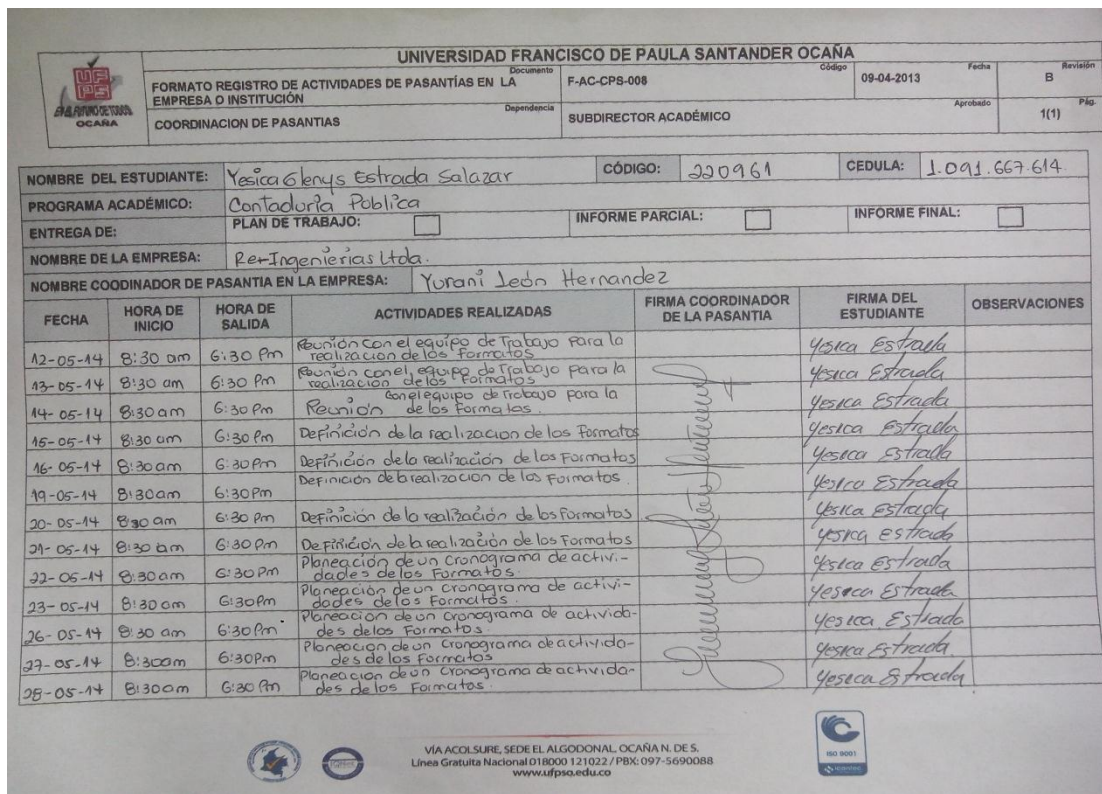 UNIVERSIDAD FRANCISCO DE PAULA SANTANDER OCAÑA
UFPS
OCAÑA
Documento
FORMATO REGISTRO DE ACTIVIDADES DE PASANTÍAS EN LA
EMPRESA O INSTITUCIÓN
Código
F-AC-CPS-008
Fecha
09-04-2013
Revisión
B
Dependencia
COORDINACION DE PASANTIAS
SUBDIRECTOR ACADÉMICO
Aprobado
Pág.
1(1)
NOMBRE DEL ESTUDIANTE: Yesica Glenys Estrada Salazar CÓDIGO: 220961 CEDULA: 1.091.667.614.
PROGRAMA ACADÉMICO: Contaduría Publica
ENTREGA DE: PLAN DE TRABAJO: INFORME PARCIAL: INFORME FINAL:
NOMBRE DE LA EMPRESA: Re+Ingenierias Ltda.
NOMBRE COODINADOR DE PASANTIA EN LA EMPRESA: Yurani León Hernandez
FECHA HORA DE INICIO HORA DE SALIDA ACTIVIDADES REALIZADAS FIRMA COORDINADOR DE LA PASANTIA FIRMA DEL ESTUDIANTE OBSERVACIONES
12-05-14 8:30 am 6:30 Pm Reunión con el equipo de Trabajo Para la realización de los Formatos Yesica Estrada
13-05-14 8:30 am 6:30 Pm Reunión con el equipo de Trabajo para la realización de los Formatos Yesica Estrada
14-05-14 8:30 am 6:30 Pm Reunión con el equipo de Trabajo para la de los Formatos. Yesica Estrada
15-05-14 8:30 am 6:30 Pm Definición de la realizacion de los Formatos Yesica Estrada
16-05-14 8:30 am 6:30 Pm Definición de la realización de los Formatos Yesica Estrada
19-05-14 8:30 am 6:30 Pm Definición de la realización de los Formatos. Yesica Estrada
20-05-14 8:30 am 6:30 Pm Definición de la realización de los Formatos Yesica Estrada
21-05-14 8:30 am 6:30 Pm Definición de la realización de los Formatos Yesica Estrada
22-05-14 8:30 am 6:30 Pm Planeación de un Cronograma de activi-dades de los Formatos. Yesica Estrada
23-05-14 8:30 am 6:30 Pm Planeación de un Cronograma de activi-dades de los Formatos. Yesica Estrada
26-05-14 8:30 am 6:30 Pm Planeación de un Cronograma de activida-des de los Formatos. Yesica Estrada
27-05-14 8:30 am 6:30 Pm Planeación de un Cronograma de activida-des de los Formatos Yesica Estrada
28-05-14 8:30 am 6:30 Pm Planeación de un Cronograma de activida-des de los Formatos. Yesica Estrada
VÍA ACOLSURE, SEDE EL ALGODONAL, OCAÑA N. DE S.
Línea Gratuita Nacional 018000 121022 / PBX: 097-5690088
www.ufpso.edu.co
ISO 9001